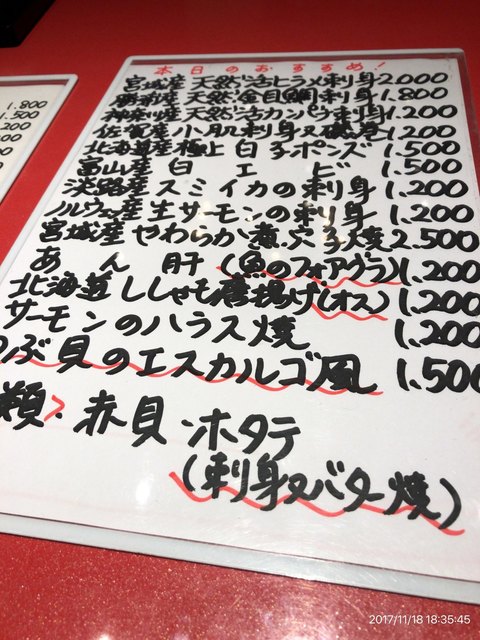 本日のおすすめ!
宮城産 天然活ヒラメ刺身 2.000
勝浦産 天然金目鯛刺身 1.800
神奈川産 天然活カンパチ刺身 1.200
佐賀産 小肌刺身又磯巻 1.200
北海道産 極上白子ポンズ 1.500
富山産 白エビ 1.500
淡路産 スミイカの刺身 1.200
ノルウェー産 生サーモンの刺身 1.200
宮城産 やわらか煮・ぶる焼 2.500
あん肝(魚のフォアグラ) 1.200
北海道ししゃも唐揚げ(オス) 1.200
サーモンのハラス焼 1.200
つぶ貝のエスカルゴ風 1.500
類> 赤貝・ホタテ
(刺身又バター焼)
1.800
1.500
2017/11/18 18:35:45